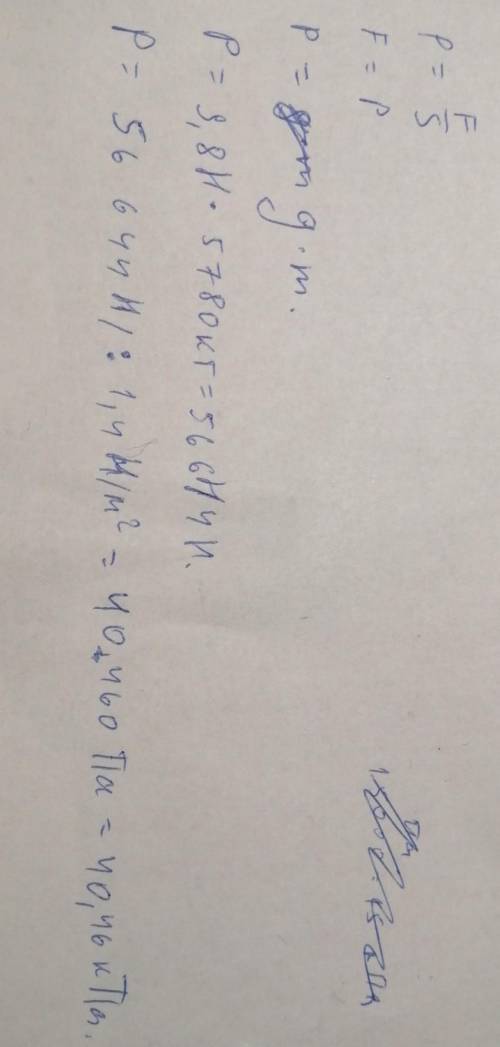 P = F/S
F = P
P = g·m.
P = 9,8Н · 5780кг = 56644Н.
P = 56 644 Н : 1,4 Н/м² = 40,460 Па = 40,46 кПа.